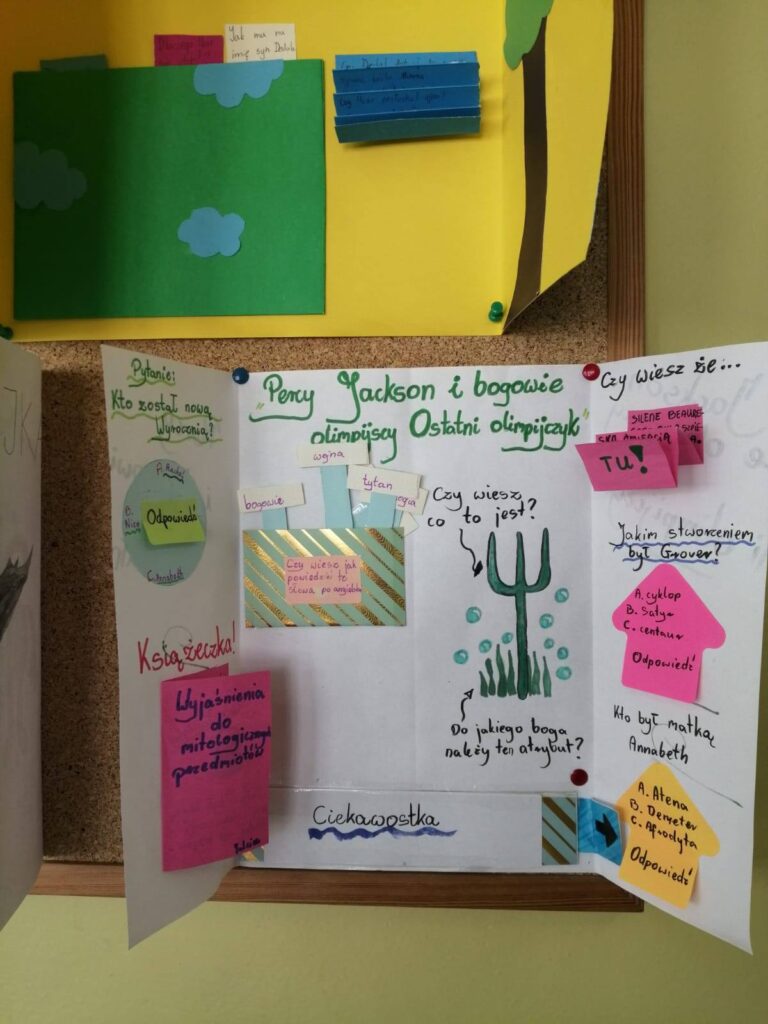 Jak ma na
imię syn Dedala
Pytanie:
Kto został nową
Wyrocznią?
A. Rachel
B.
Nico
Odpowiedź
C. Annabeth
Książeczka!
Wyjaśnienia
do
mitologicznych
przedmiotów
"Percy Jackson i bogowie
olimpijscy Ostatni olimpijczyk"
wojna
tytan
bogowie
Czy wiesz jak
powiedzieć te
słowa po angielsku
Czy wiesz
co to jest?
Do jakiego boga
należy ten atrybut?
Ciekawostka
Czy wiesz że...
SILENE BEAURE-
TU!
Jakim stworzeniem
był Grover?
A. cyklop
B. Satyr
C. centaur
Odpowiedź
Kto był matką
Annabeth
A. Atena
B. Demeter
C. Afrodyta
Odpowiedź